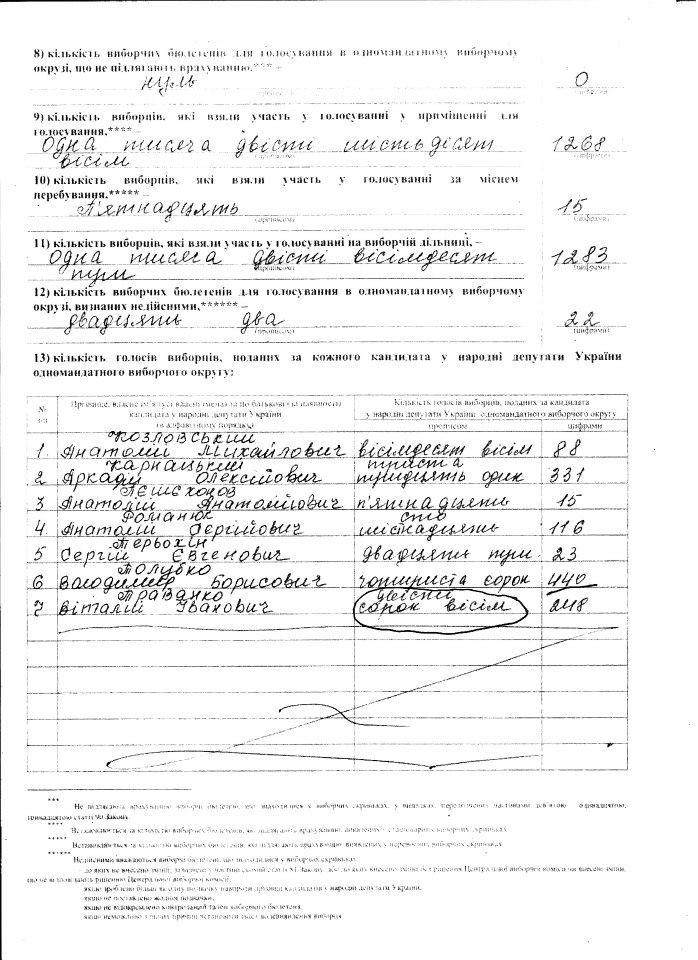 8) кількість виборчих бюлетенів для голосування в одномандатному виборчому
окрузі, що не підлягають врахуванню,*** –
нуль 0
(прописом) (цифрами)
9) кількість виборців, які взяли участь у голосуванні у приміщенні для
голосування,**** –
одна тисяча двісті шістьдесят 1268
вісім (прописом) (цифрами)
10) кількість виборців, які взяли участь у голосуванні за місцем
перебування,*****
п'ятнадцять 15
(прописом) (цифрами)
11) кількість виборців, які взяли участь у голосуванні на виборчій дільниці, –
одна тисяча двісті вісімдесят 1283
три (прописом) (цифрами)
12) кількість виборчих бюлетенів для голосування в одномандатному виборчому
окрузі, визнаних недійсними,****** –
двадцять два 22
(прописом) (цифрами)
13) кількість голосів виборців, поданих за кожного кандидата у народні депутати України
одномандатного виборчого округу:
№
з/п
Прізвище, власне ім'я (усі власні імена) та по батькові (за наявності)
кандидата у народні депутати України
(в алфавітному порядку)
Кількість голосів виборців, поданих за кандидата
у народні депутати України одномандатного виборчого округу
прописом цифрами
Козловський
1. Анатолій Михайлович вісімдесят вісім 88
Карнацький триста
2 Аркадій Олексійович тридцять один 331
Лешехонов
3 Анатолій Анатолійович п'ятнадцять 15
Романюк сто
4 Анатолій Сергійович шістнадцять 116
Терьохін
5 Сергій Євгенович двадцять три 23
Голубко
6 Володимир Борисович чотириста сорок 440
Правенко двісті
7 Віталій Іванович сорок вісім 248
***
Не підлягають врахуванню виборчі бюлетені, що знаходилися у виборчих скриньках, у випадках, передбачених частинами дев'ятою – одинадцятою,
тринадцятою статті 90 Закону.
****
Встановлюється за кількістю виборчих бюлетенів, які підлягають врахуванню, виявлених у стаціонарних виборчих скриньках.
*****
Встановлюється за кількістю виборчих бюлетенів, які підлягають врахуванню, виявлених у переносних виборчих скриньках.
******
Недійсними вважаються виборчі бюлетені, що знаходилися у виборчих скриньках:
якщо зроблено більш як одну позначку навпроти прізвищ кандидатів у народні депутати України;
якщо не поставлено жодної позначки;
якщо не відокремлено контрольний талон виборчого бюлетеня;
якщо неможливо з інших причин встановити зміст волевиявлення виборця.